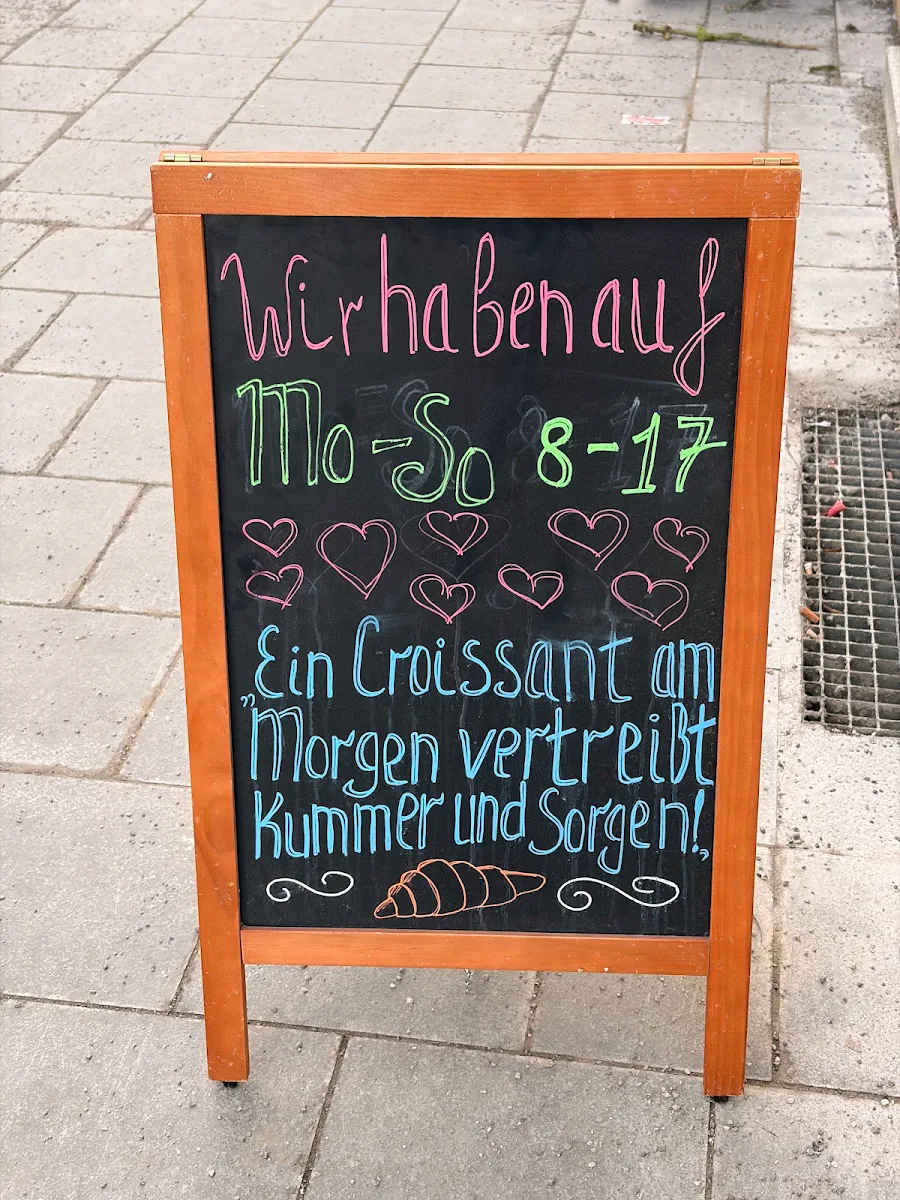 Wir haben auf
Mo-So 8-17
„Ein Croissant am
Morgen vertreißt
Kummer und Sorgen!„